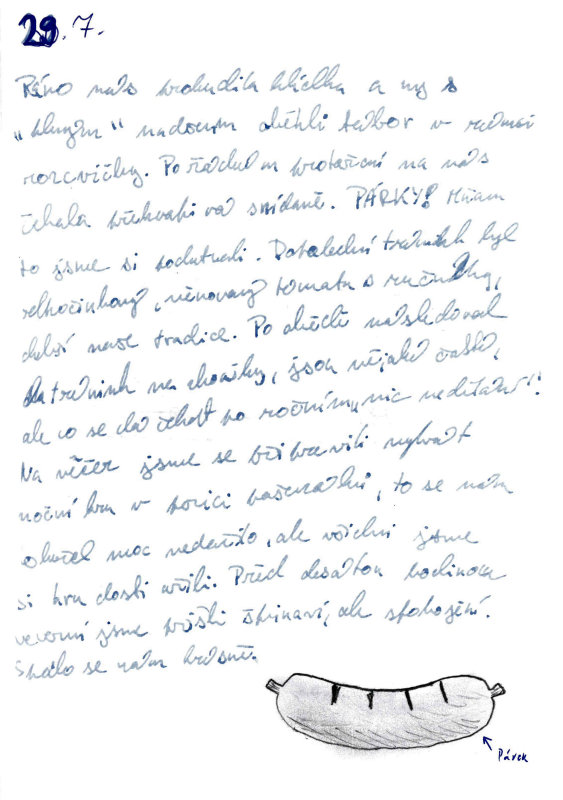 29.7.
Ráno nás probudila küelka a my s
"klusem" nadocim oběhli tábor v rámci
rozcvičky. Po řádném protažení na nás
čekala překvapivá snídaně. PÁRKY! Mňam
to jsme si pochutnali. Dopolední trénink byl
, věnovaný tomatu s ručníky,
další naše tradice. Po obědě následoval
trénink na chvaty, jsou nějaké časté,
ale co se dá čekat po ročním "nic nedělání"!
Na věčer jsme se připravili vyhrát
noční hru v pozici pašeráků, to se nám
ovšem moc nedařilo, ale všichni jsme
si hru dosti užili. Před desátou hodinou
večerní jsme přišli špinaví, ale spokojení.
Spálo se nám krásně.
Párek